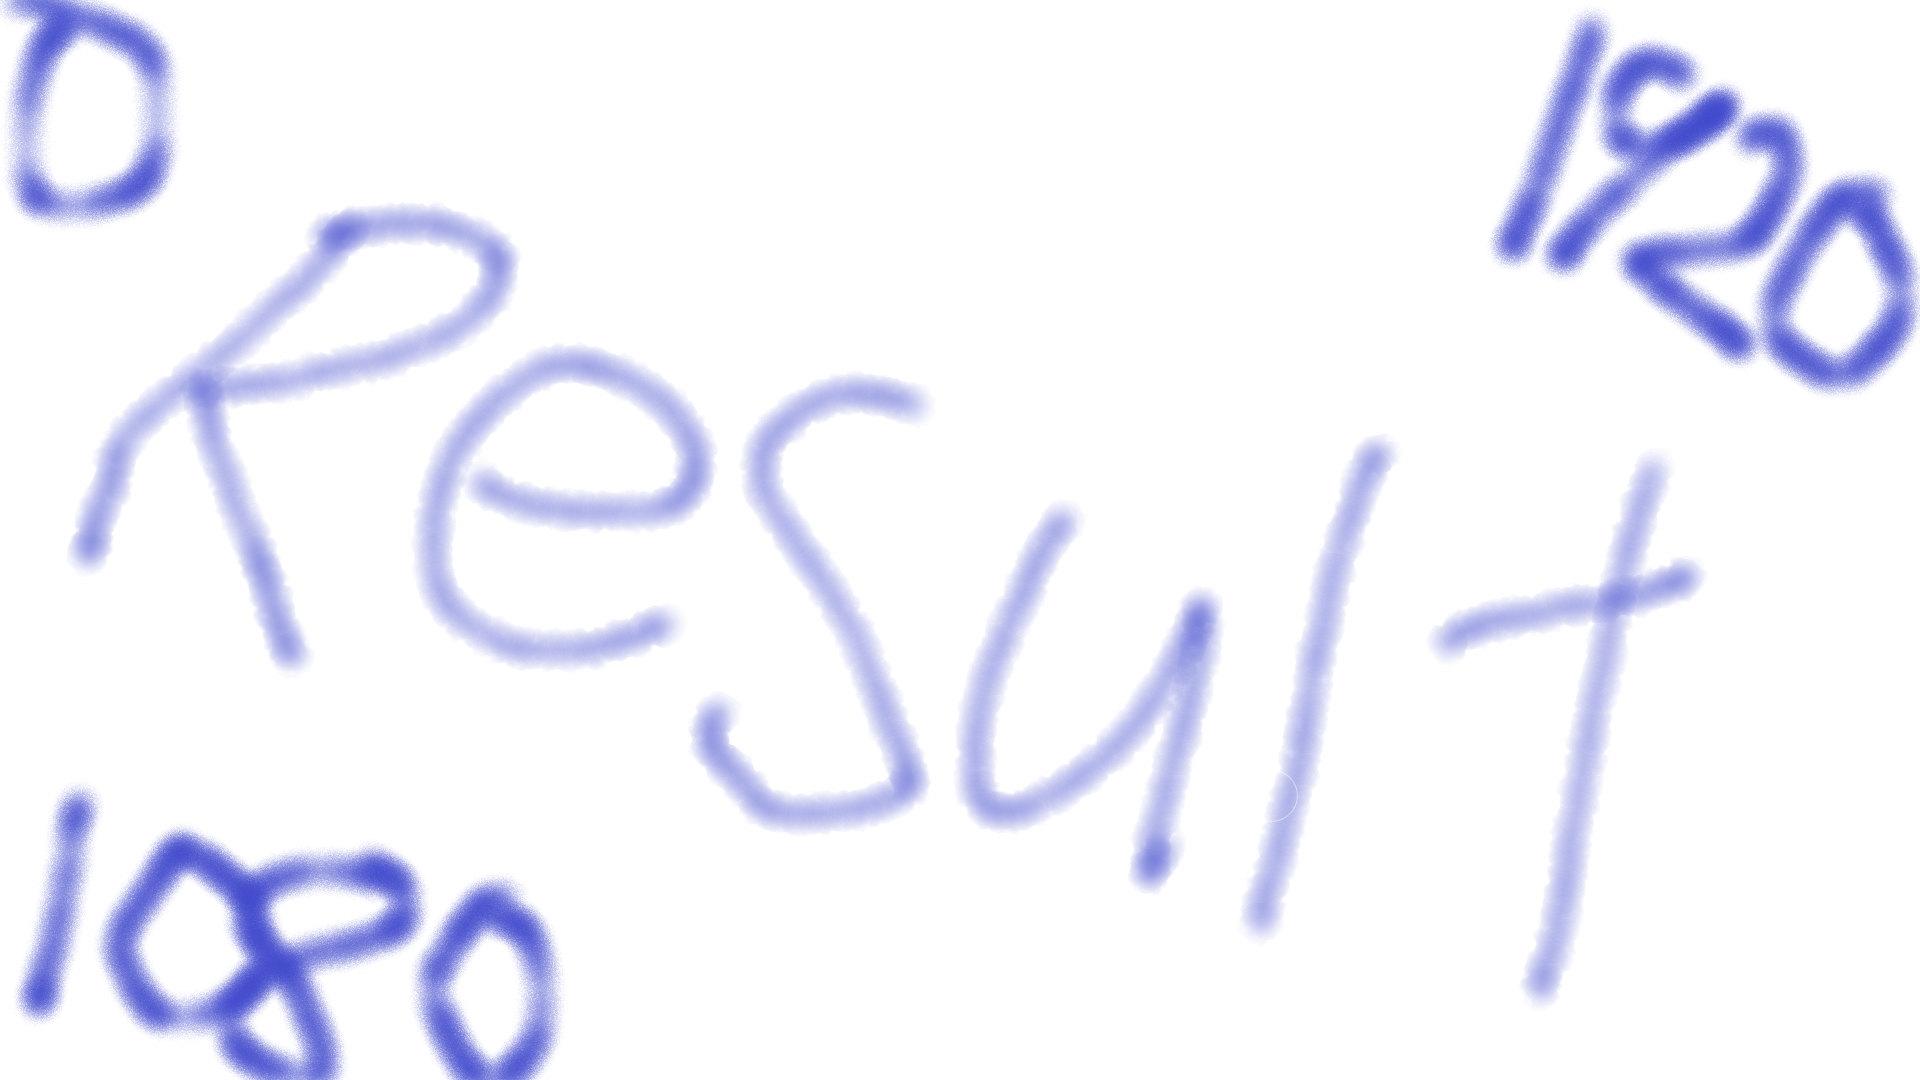 0
1920
Result
1080